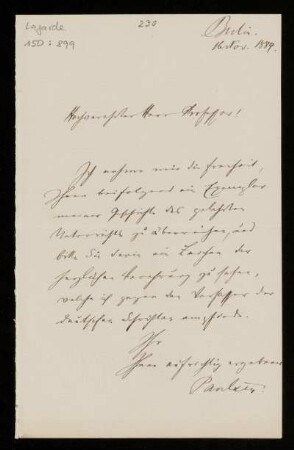 Lagarde
150 : 899
230
Berlin.
16 Nov. 1884.
Hochverehrter Herr Professor!
Ich nehme mir die Freiheit,
Ihnen beifolgend ein Exemplar
meiner Geschichte des gelehrten
Unterrichts zu überreichen, und
bitte Sie darin ein Zeichen der
herzlichen Verehrung zu sehen,
welche ich gegen den Verfasser der
deutschen Schriften empfinde.
Ihr
Ihnen aufrichtig ergebener
Paulsen.